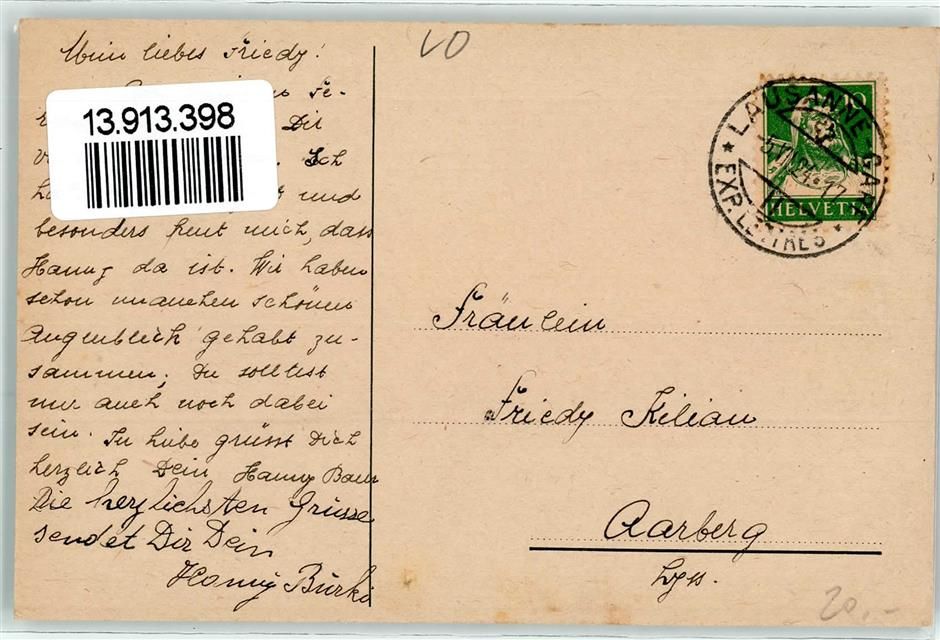 Mein liebes Friedy!
13.913.398
Dir
Ich
und
besonders freut mich, dass
Hanny da ist. Wir haben
schon manchen schönen
Augenblick gehabt zu-
sammen; Du solltest
nur auch noch dabei
sein. In Liebe grüsst Dich
herzlich Dein Hanny Baur
Die herzlichsten Grüsse
sendet Dir Dein
Hanny Bürki
LAUSANNE GARE
EXP. LETTRES
10
HELVETIA
Fräulein
Friedy Kilian
Aarberg
Lyss.
20.-